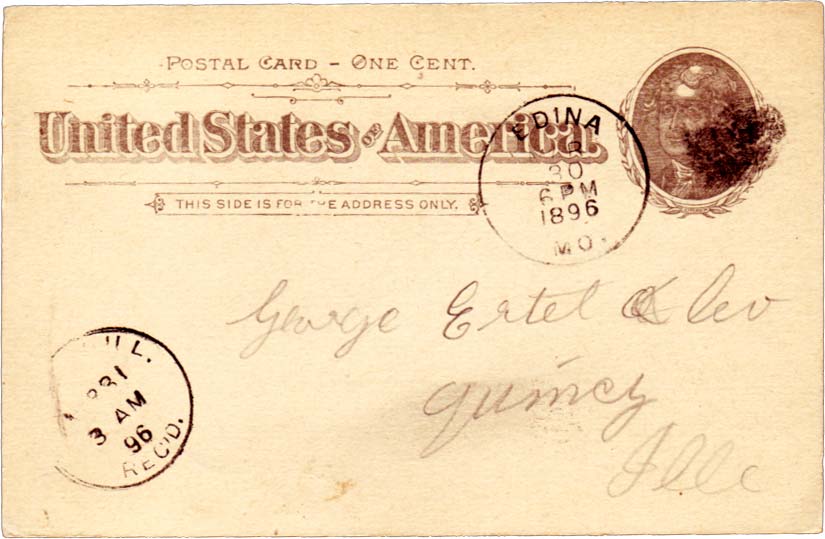 POSTAL CARD - ONE CENT.
United States OF America.
THIS SIDE IS FOR THE ADDRESS ONLY.
EDINA
30
6 PM
1896
MO.
George Ertel & Co
Quincy
Ills
ILL.
31
3 AM
96
REC'D.